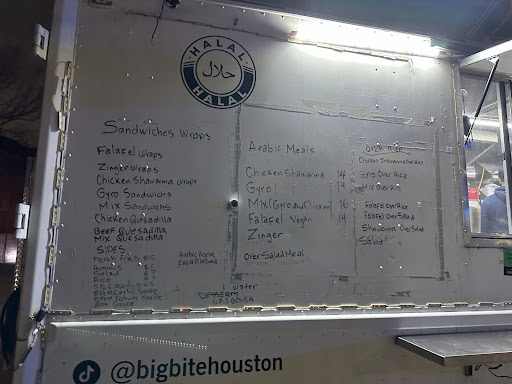 HALAL
حلال
HALAL
Sandwiches Wraps
Falafel Wraps
Zinger Wraps
Chicken Shawarma Wraps
Gyro Sandwichs
Mix Sandwichs
Chicken Quesadilla
Beef Quesadilla
Mix Quesadilla
SIDES
French Fries
Hummus
Salad
Rice
Extra Garlic Sauce
Sauce
Arabic Meals
Chicken Shawarma 14
Gyro 14
Mix (Gyro and Chicken) 16
Falafel Vegan 14
Zinger
Over Salad Meal
Over Rice
Chicken Shawarma Over Rice
Gyro Over Rice
Mix Over Rice
Falafel Over Rice
Falafel Over Salad
Shawarma Over Salad
Salad
Water
DESSERTS
@bigbitehouston